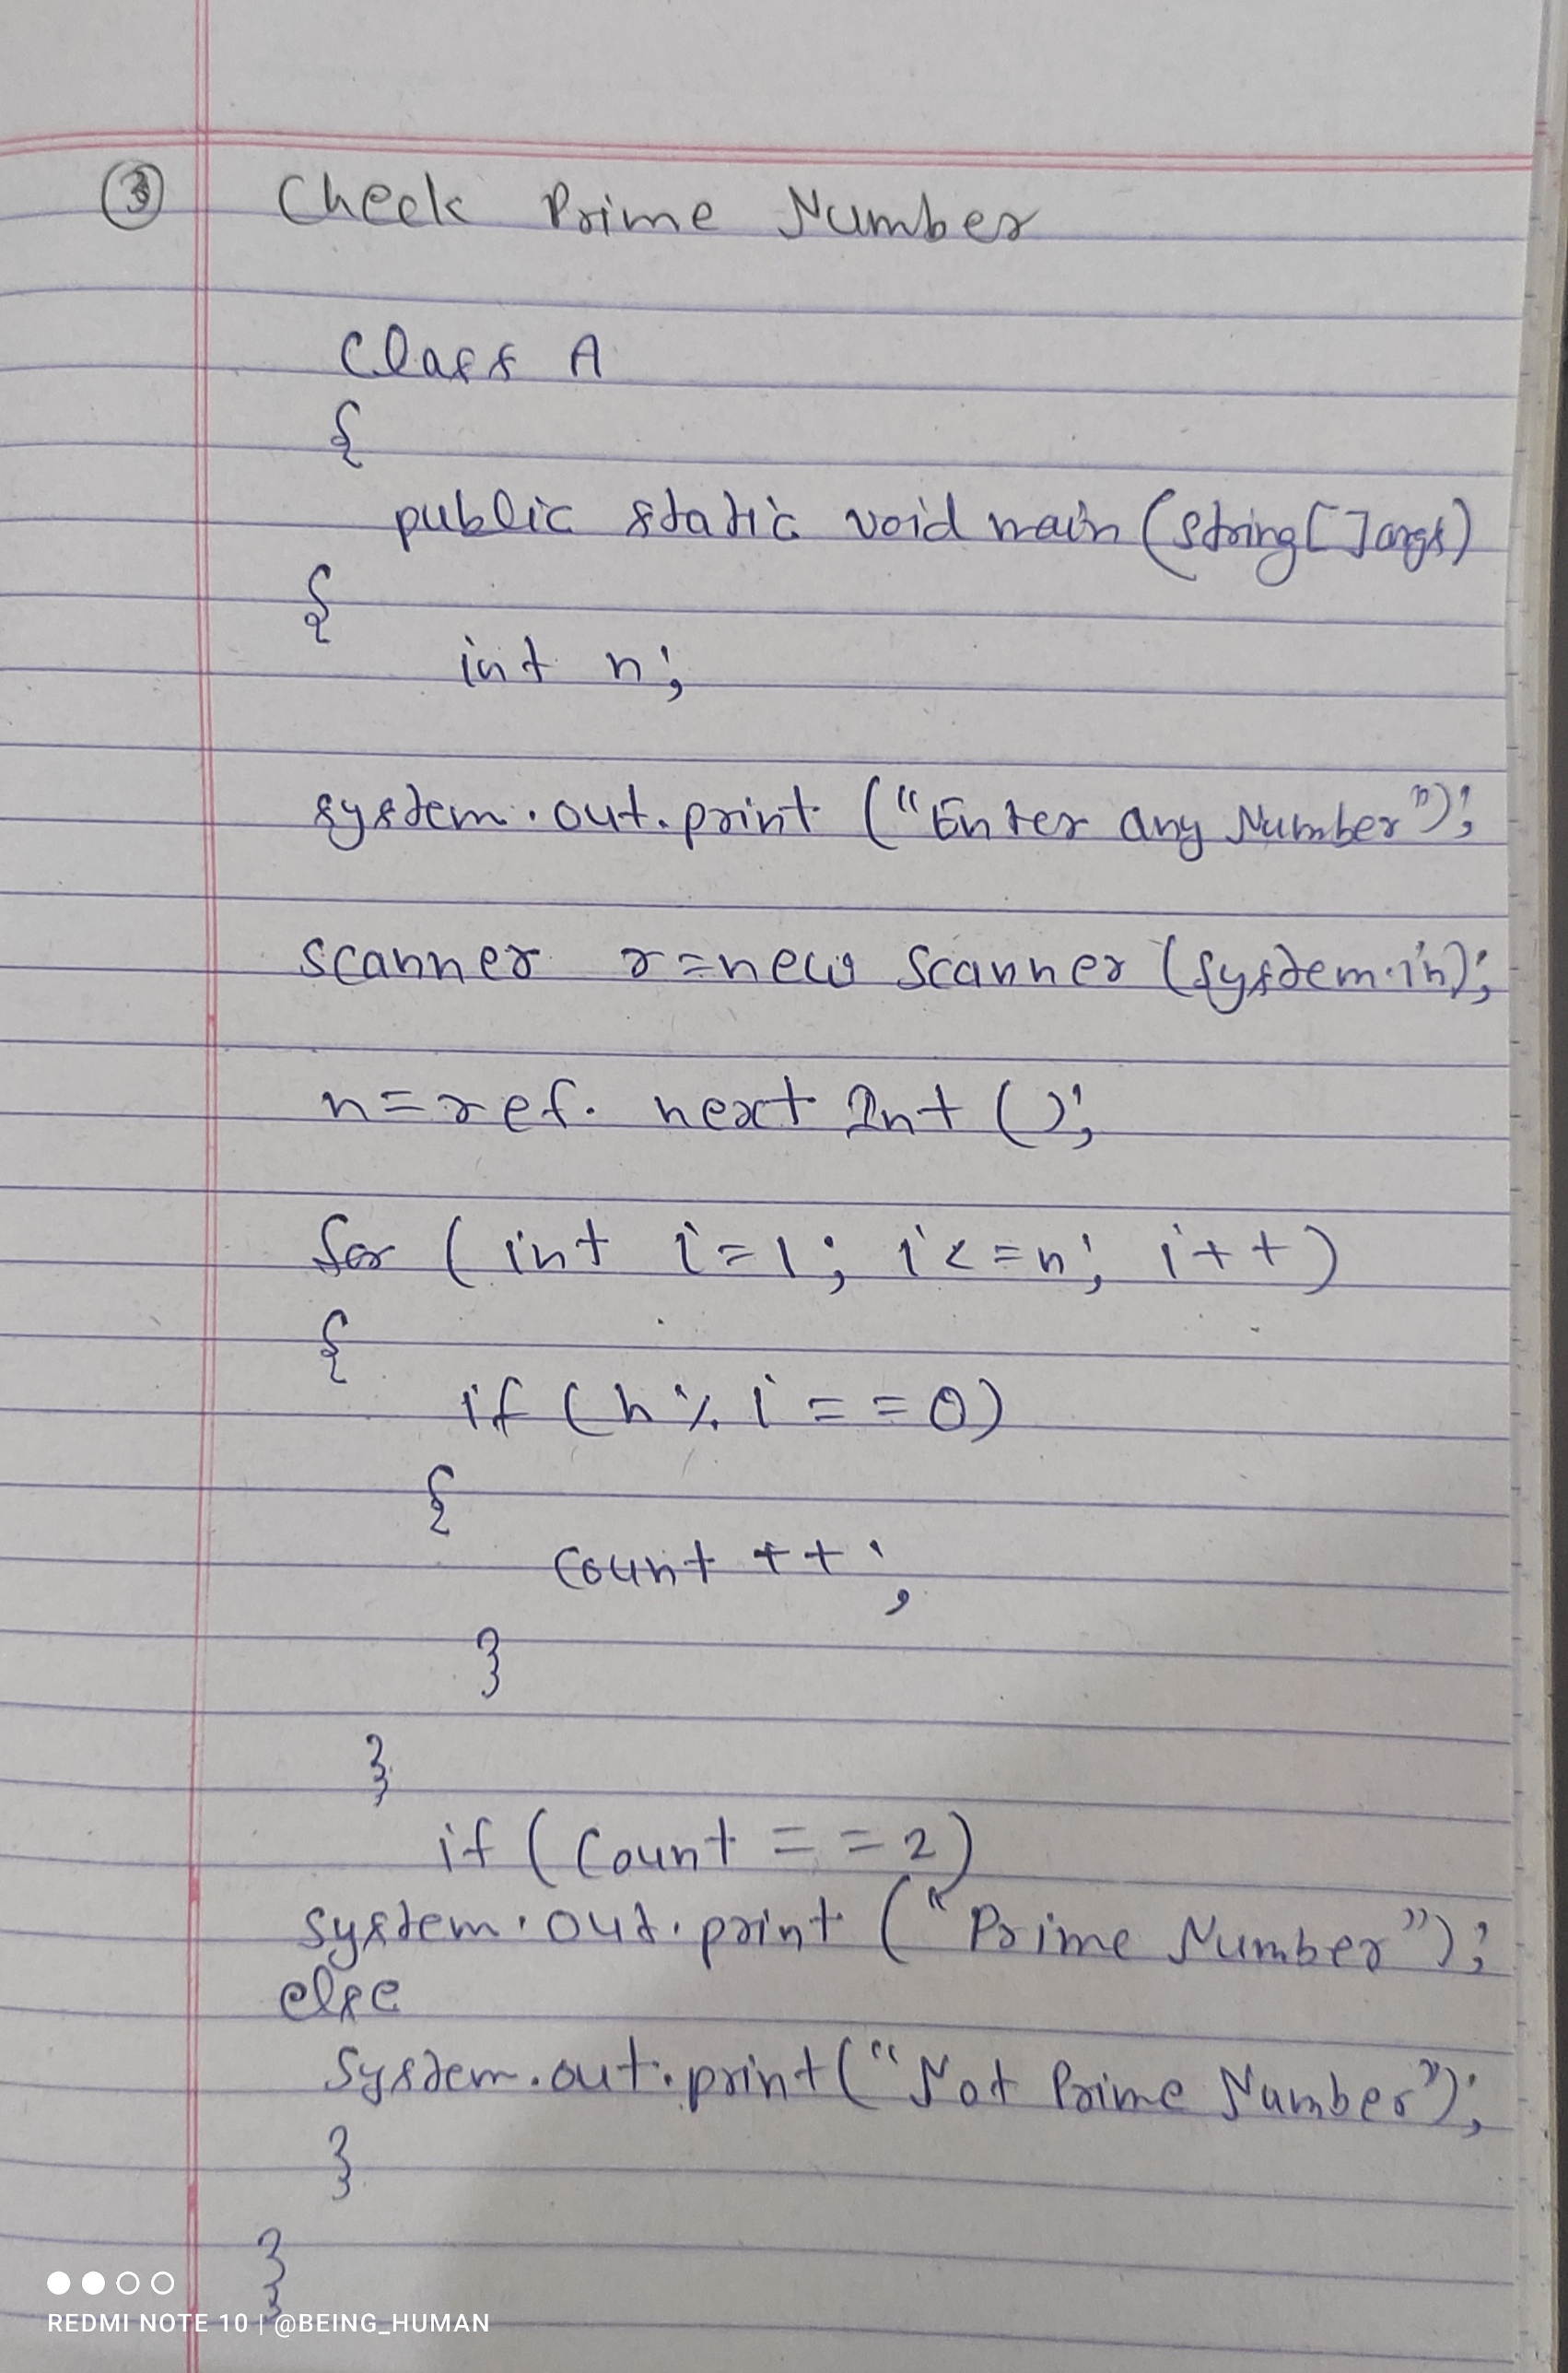 3 Check Prime Number
Class A
{
public static void main (string[] args)
{
int n;
system.out.print ("Enter any Number");
scanner r=new scanner (system.in);
n=ref. next Int ();
for (int i=1; i<=n; i++)
{
if (n%i==0)
{
count ++;
}
}
if (Count ==2)
system.out.print ("Prime Number");
else
system.out.print("Not Prime Number");
}
}
REDMI NOTE 10 | @BEING_HUMAN